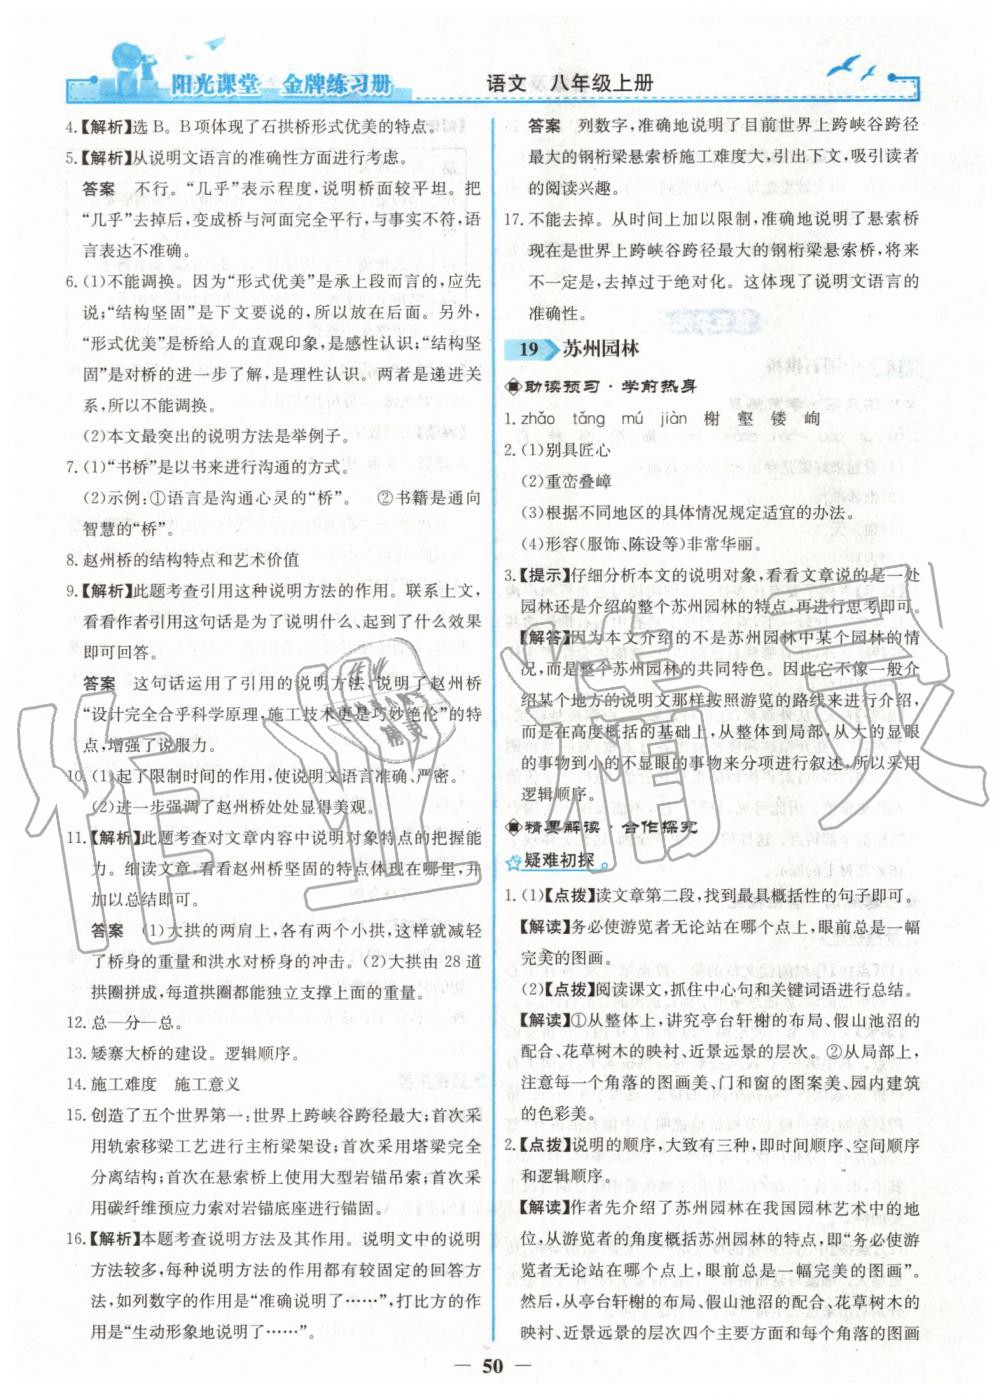 阳光课堂 金牌练习册
语文 八年级上册
4.【解析】选B。B项体现了石拱桥形式优美的特点。
5.【解析】从说明文语言的准确性方面进行考虑。
答案 不行。“几乎”表示程度,说明桥面较平坦。把
“几乎”去掉后,变成桥与河面完全平行,与事实不符,语
言表达不准确。
6.(1)不能调换。因为“形式优美”是承上段而言的,应先
说;“结构坚固”是下文要说的,所以放在后面。另外,
“形式优美”是桥给人的直观印象,是感性认识;“结构坚
固”是对桥的进一步了解,是理性认识。两者是递进关
系,所以不能调换。
(2)本文最突出的说明方法是举例子。
7.(1)“书桥”是以书来进行沟通的方式。
(2)示例:①语言是沟通心灵的“桥”。 ②书籍是通向
智慧的“桥”。
8.赵州桥的结构特点和艺术价值
9.【解析】此题考查引用这种说明方法的作用。联系上文,
看看作者引用这句话是为了说明什么、起到了什么效果
即可回答。
答案 这句话运用了引用的说明方法,说明了赵州桥
“设计完全合乎科学原理,施工技术更是巧妙绝伦”的特
点,增强了说服力。
10.(1)起了限制时间的作用,使说明文语言准确、严密。
(2)进一步强调了赵州桥处处显得美观。
11.【解析】此题考查对文章内容中说明对象特点的把握能
力。细读文章,看看赵州桥坚固的特点体现在哪里,并
加以总结即可。
答案 (1)大拱的两肩上,各有两个小拱,这样就减轻
了桥身的重量和洪水对桥身的冲击。(2)大拱由28道
拱圈拼成,每道拱圈都能独立支撑上面的重量。
12.总—分—总。
13.矮寨大桥的建设。逻辑顺序。
14.施工难度 施工意义
15.创造了五个世界第一:世界上跨峡谷跨径最大;首次采
用轨索移梁工艺进行主桁梁架设;首次采用塔梁完全
分离结构;首次在悬索桥上使用大型岩锚吊索;首次采
用碳纤维预应力索对岩锚底座进行锚固。
16.【解析】本题考查说明方法及其作用。说明文中的说明
方法较多,每种说明方法的作用都有较固定的回答方
法,如列数字的作用是“准确说明了……”,打比方的作
用是“生动形象地说明了……”。
答案 列数字,准确地说明了目前世界上跨峡谷跨径
最大的钢桁梁悬索桥施工难度大,引出下文,吸引读者
的阅读兴趣。
17.不能去掉。从时间上加以限制,准确地说明了悬索桥
现在是世界上跨峡谷跨径最大的钢桁梁悬索桥,将来
不一定是,去掉过于绝对化。这体现了说明文语言的
准确性。
19 苏州园林
助读预习·学前热身
1. zhǎo tǎng mú jiàn 榭 壑 镂 峋
2.(1)别具匠心
(2)重峦叠嶂
(3)根据不同地区的具体情况规定适宜的办法。
(4)形容(服饰、陈设等)非常华丽。
3.【提示】仔细分析本文的说明对象,看看文章说的是一处
园林还是介绍的整个苏州园林的特点,再进行思考即可。
【解答】因为本文介绍的不是苏州园林中某个园林的情
况,而是整个苏州园林的共同特色。因此它不像一般介
绍某个地方的说明文那样按照游览的路线来进行介绍,
而是在高度概括的基础上,从整体到局部,从大的显眼
的事物到小的不显眼的事物来分项进行叙述,所以采用
逻辑顺序。
精要解读·合作探究
疑难初探
1.(1)【点拨】读文章第二段,找到最具概括性的句子即可。
【解读】务必使游览者无论站在哪个点上,眼前总是一幅
完美的图画。
(2)【点拨】阅读课文,抓住中心句和关键词语进行总结。
【解读】①从整体上,讲究亭台轩榭的布局、假山池沼的
配合、花草树木的映衬、近景远景的层次。②从局部上,
注意每一个角落的图画美、门和窗的图案美、园内建筑
的色彩美。
2.【点拨】说明的顺序,大致有三种,即时间顺序、空间顺序
和逻辑顺序。
【解读】作者先介绍了苏州园林在我国园林艺术中的地
位,从游览者的角度概括苏州园林的特点,即“务必使游
览者无论站在哪个点上,眼前总是一幅完美的图画”。
然后,从亭台轩榭的布局、假山池沼的配合、花草树木的
映衬、近景远景的层次四个主要方面和每个角落的图画
50
作业精灵